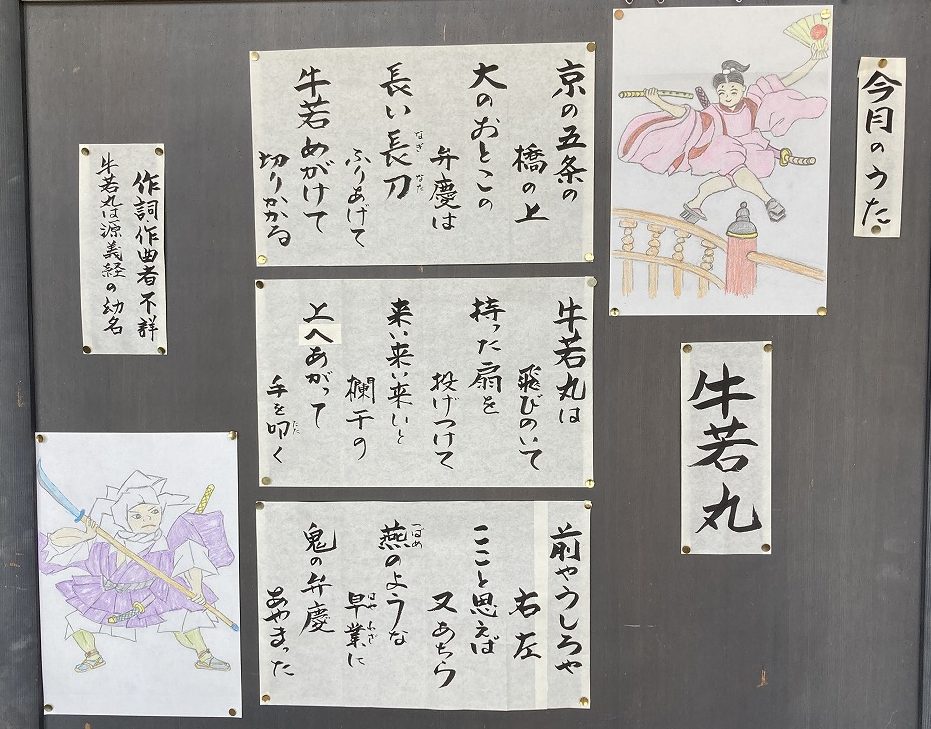 今月のうた
牛若丸
京の五条の
橋の上
大のおとこの
弁慶は
長い長刀
なぎなた
ふりあげて
牛若めがけて
切りかかる
牛若丸は
飛びのいて
持った扇を
投げつけて
来い来い来いと
欄干の
上へあがって
手を叩く
たた
前やうしろや
右左
ここと思えば
又あちら
燕のような
つばめ
早業に
はやわざ
鬼の弁慶
あやまった
作詞・作曲者不詳
牛若丸は源義経の幼名